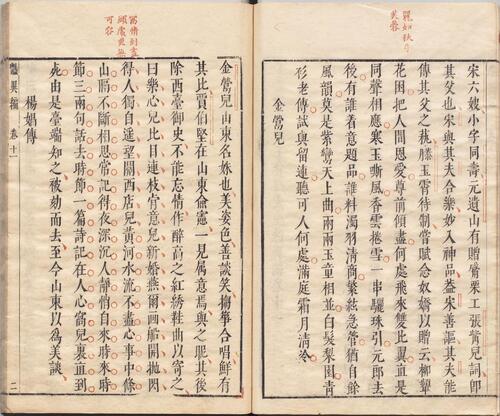 宋六嫂小字同壽元遺山有贈觱栗工張觜兒詞卽
其父也宋與其夫合樂妙入神品蓋宋善謳其夫能
傳其父之藝滕玉霄待制嘗賦念奴嬌以贈云柳顰
花困把人間恩愛尊前傾盡何處飛來雙比翼直是
同聲相應寒玉嘶風香雲捲雪一串驪珠引元郎去
後有誰着意題品誰料濁羽清商繁絃急管猶自餘
風韻莫是紫鸞天上曲兩兩玉童相並白髮梨園青
衫老傳試與留連聽可人何處滿庭霜月清冷
金鶯兒
金鶯兒山東名姝也美姿色善談笑搊箏合唱鮮有
其比賈伯堅在山東僉憲一見屬意焉與之昵其後
除西臺御史不能忘情作醉高之紅綉鞋曲以寄之
曰樂心兒比目連枝肯意兒新婚燕爾畫船開抛閃
得人獨自遙望關西店兒黃河水流不盡心事中條
山隔不斷相思常記得夜深沉人靜悄自來時來時
節三兩句話去時節一篇詩記在人心窩裏直到
死由是臺端知之被劾而去至今山東以爲美談
楊娼傳
豔異編 卷十一 二